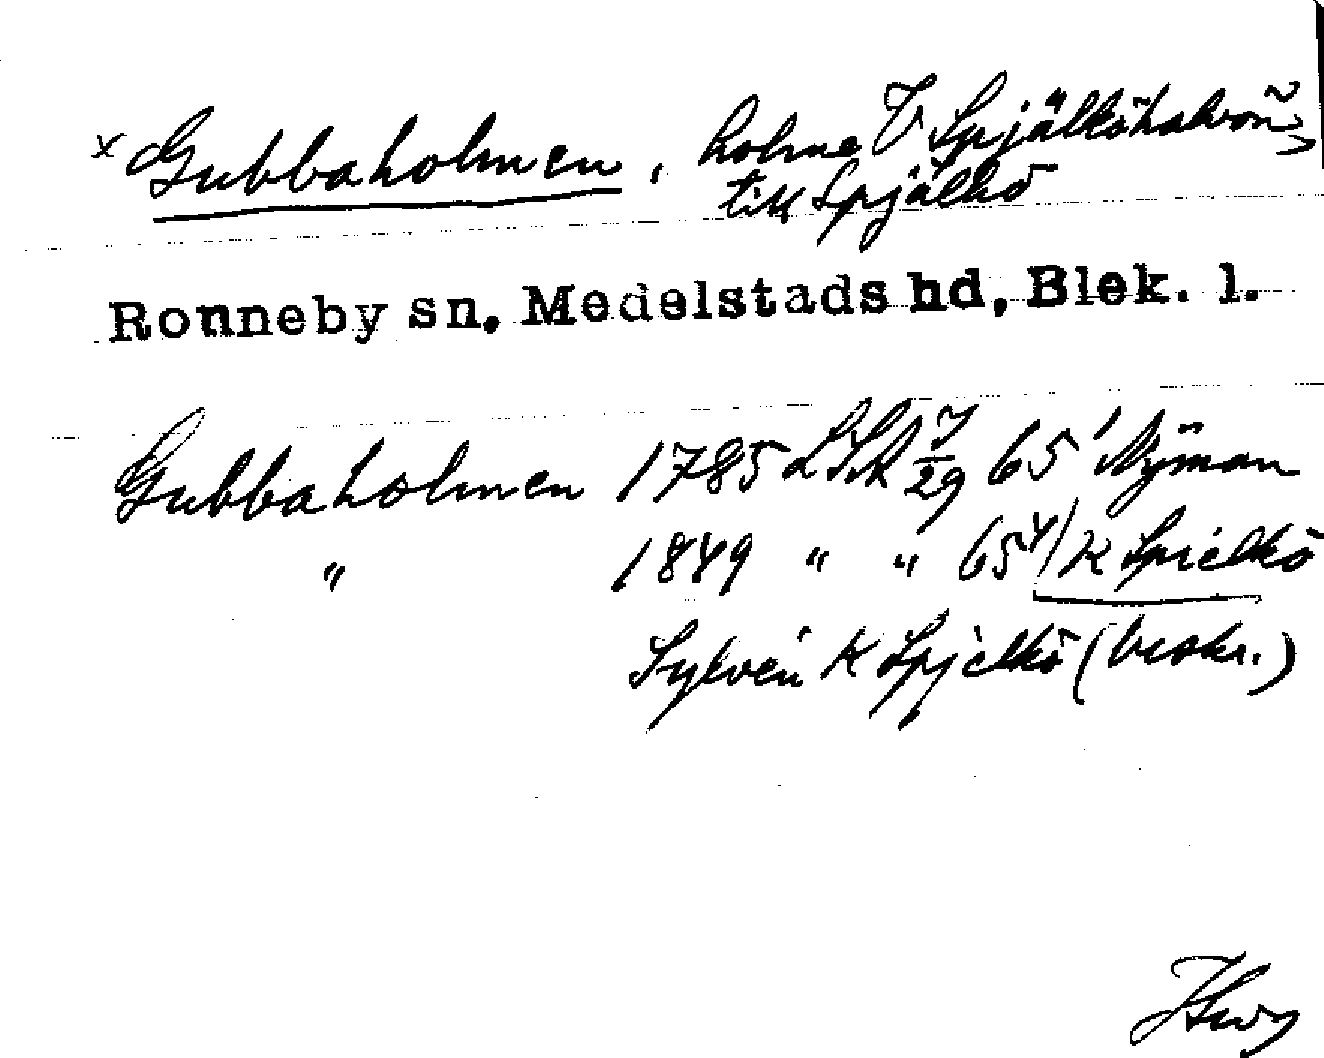 x Gubbaholmen, holme V Spjälköhalvön,
till Spjälkö
Ronneby sn, Medelstads hd, Blek. l.
Gubbaholmen 1785 LSA 7/29 65¹ Nyman
" 1849 " " 65⁴/ K Spielkö
Sylvén K Spjelkö (beskr.)